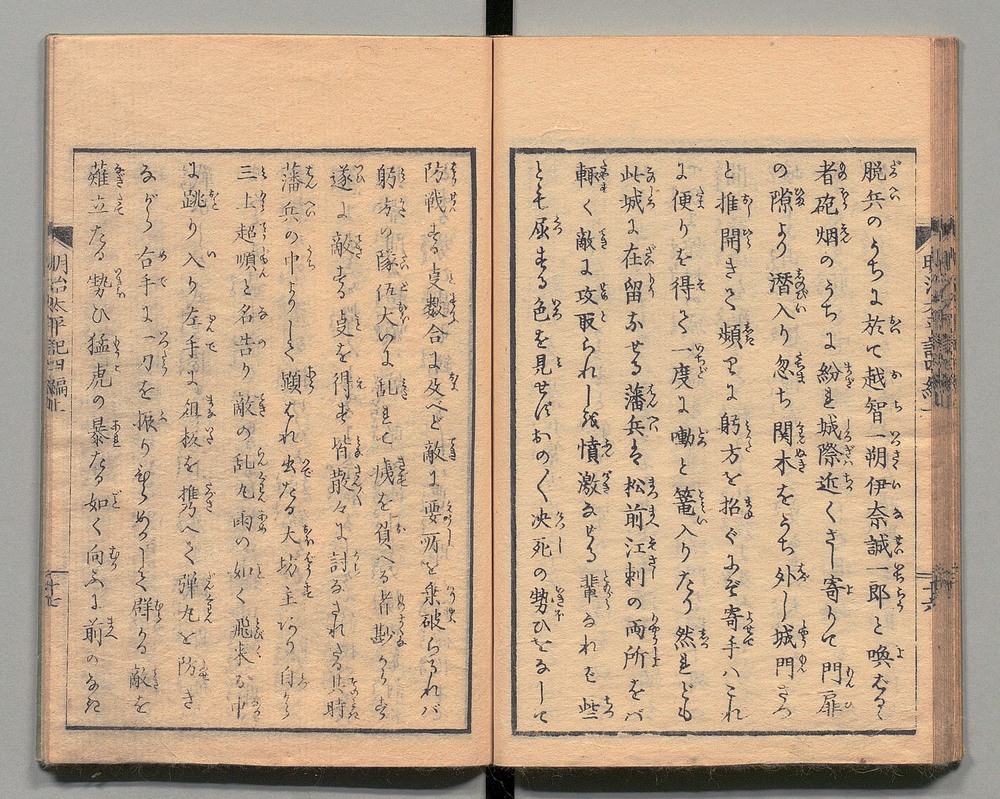 脱兵のうちに於て越智一朔伊奈誠一郎と喚なる
者砲烟のうちに紛れ城際近くさし寄りて門扉
の隙より潜入り忽ち関木をうち外し城門さつ
と推開きて頻りに躬方を招ぐにぞ寄手ハこれ
に便りを得て一度に動と篭入りたり然れども
此城に在留なせる藩兵は松前江刺の両所をバ
輙く敵に攻取られしを憤激なせる輩なれば些
とも屈する色を見せずおの〳〵决死の勢ひをなして
防戦する事数合に及べど敵に要所を乗破られバ
躬方の隊伍大いに乱れて痍を負へる者尠からず
遂に敵する事を得ず皆散々に討るされさる其時
藩兵の中よりして顕はれ出たる大坊主あり自から
三上超順と名告り敵の乱丸雨の如く飛来る中
に跳り入り左手に俎板を携へて弾丸を防ぎ
ながら右手に一刀を振り群る敵を
薙立たる勢ひ猛虎の暴たる如く向ふに前のなき
明治太平記四編上
十六
明治太平記四編上
十七